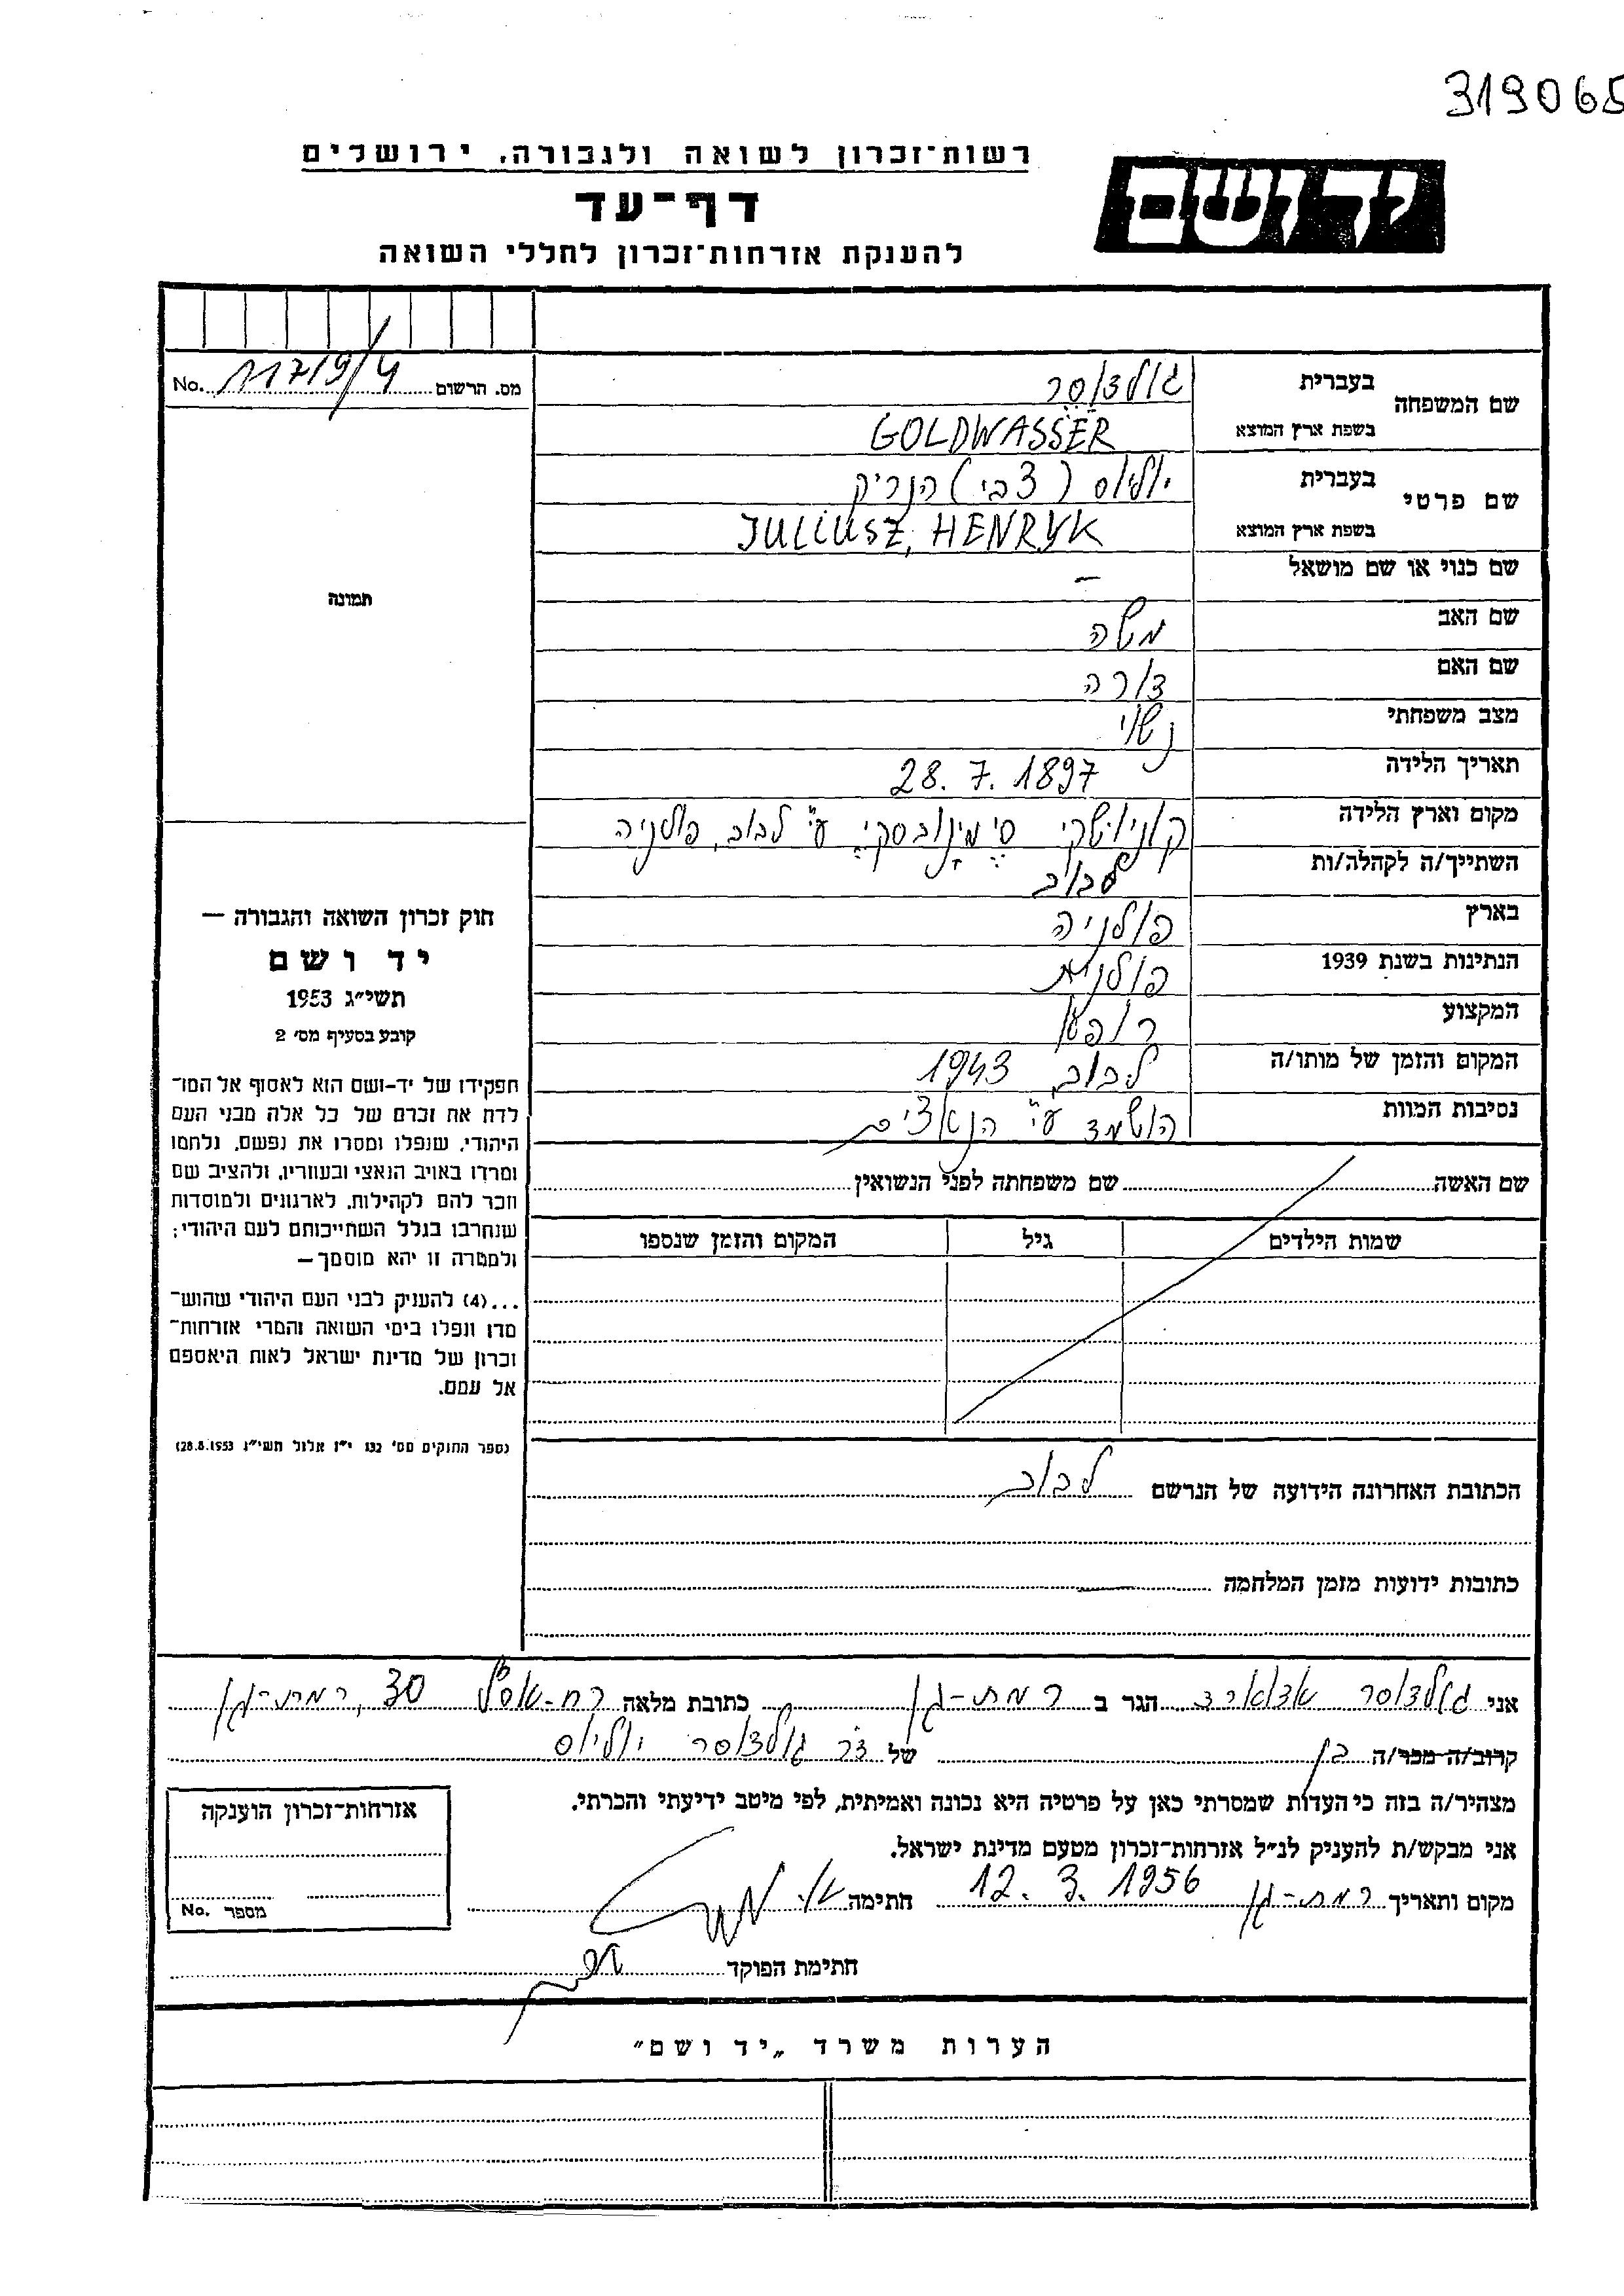 319065
רשות־זכרון לשואה ולגבורה, ירושלים
יד ושם
דף־עד
להענקת אזרחות־זכרון לחללי השואה
מס. הרשום 11719/4 No.
שם המשפחה
בעברית גולדוסר
בשפת ארץ המוצא GOLDWASSER
שם פרטי
בעברית יוליוס (צבי) הנריק
בשפת ארץ המוצא JULIUSZ, HENRYK
שם כנוי או שם מושאל –
שם האב משה
שם האם דורה
מצב משפחתי נשוי
תאריך הלידה 28. 7. 1897
מקום וארץ הלידה ע"י לבוב, פולניה
השתייך/ה לקהלה/ות לבוב
בארץ פולניה
הנתינות בשנת 1939 פולנית
המקצוע רופא
המקום והזמן של מותו/ה לבוב, 1943
נסיבות המוות הושמד ע"י הנאצים
תמונה
חוק זכרון השואה והגבורה —
יד ושם
תשי״ג 1953
קובע בסעיף מס׳ 2
תפקידו של יד-ושם הוא לאסוף אל המו־
לדת את זכרם של כל אלה מבני העם
היהודי, שנפלו ומסרו את נפשם, נלחמו
ומרדו באויב הנאצי ובעוזריו, ולהציב שם
וזכר להם לקהילות, לארגונים ולמוסדות
שנחרבו בגלל השתייכותם לעם היהודי;
ולמטרה זו יהא מוסמך—
...(4) להעניק לבני העם היהודי שהוש־
מדו ונפלו בימי השואה והמרי אזרחות־
זכרון של מדינת ישראל לאות היאספם
אל עמם.
(ספר החוקים מס׳ 132 י״ז אלול תשי״ג 28.8.1953)
שם האשה שם משפחתה לפני הנשואין
שמות הילדים גיל המקום והזמן שנספו
הכתובת האחרונה הידועה של הנרשם לבוב
כתובות ידועות מזמן המלחמה
אני גולדוסר אדוארד הגר ב רמת-גן כתובת מלאה 30, רמת-גן
קרוב/ה מכר/ה בן של ד"ר גולדוסר יוליוס
מצהיר/ה בזה כי העדות שמסרתי כאן על פרטיה היא נכונה ואמיתית, לפי מיטב ידיעתי והכרתי.
אני מבקש/ת להעניק לנ״ל אזרחות־זכרון מטעם מדינת ישראל.
מקום ותאריך רמת-גן 12. 3. 1956 חתימה
חתימת הפוקד
אזרחות־זכרון הוענקה
מספר No.
הערות משרד „יד ושם״